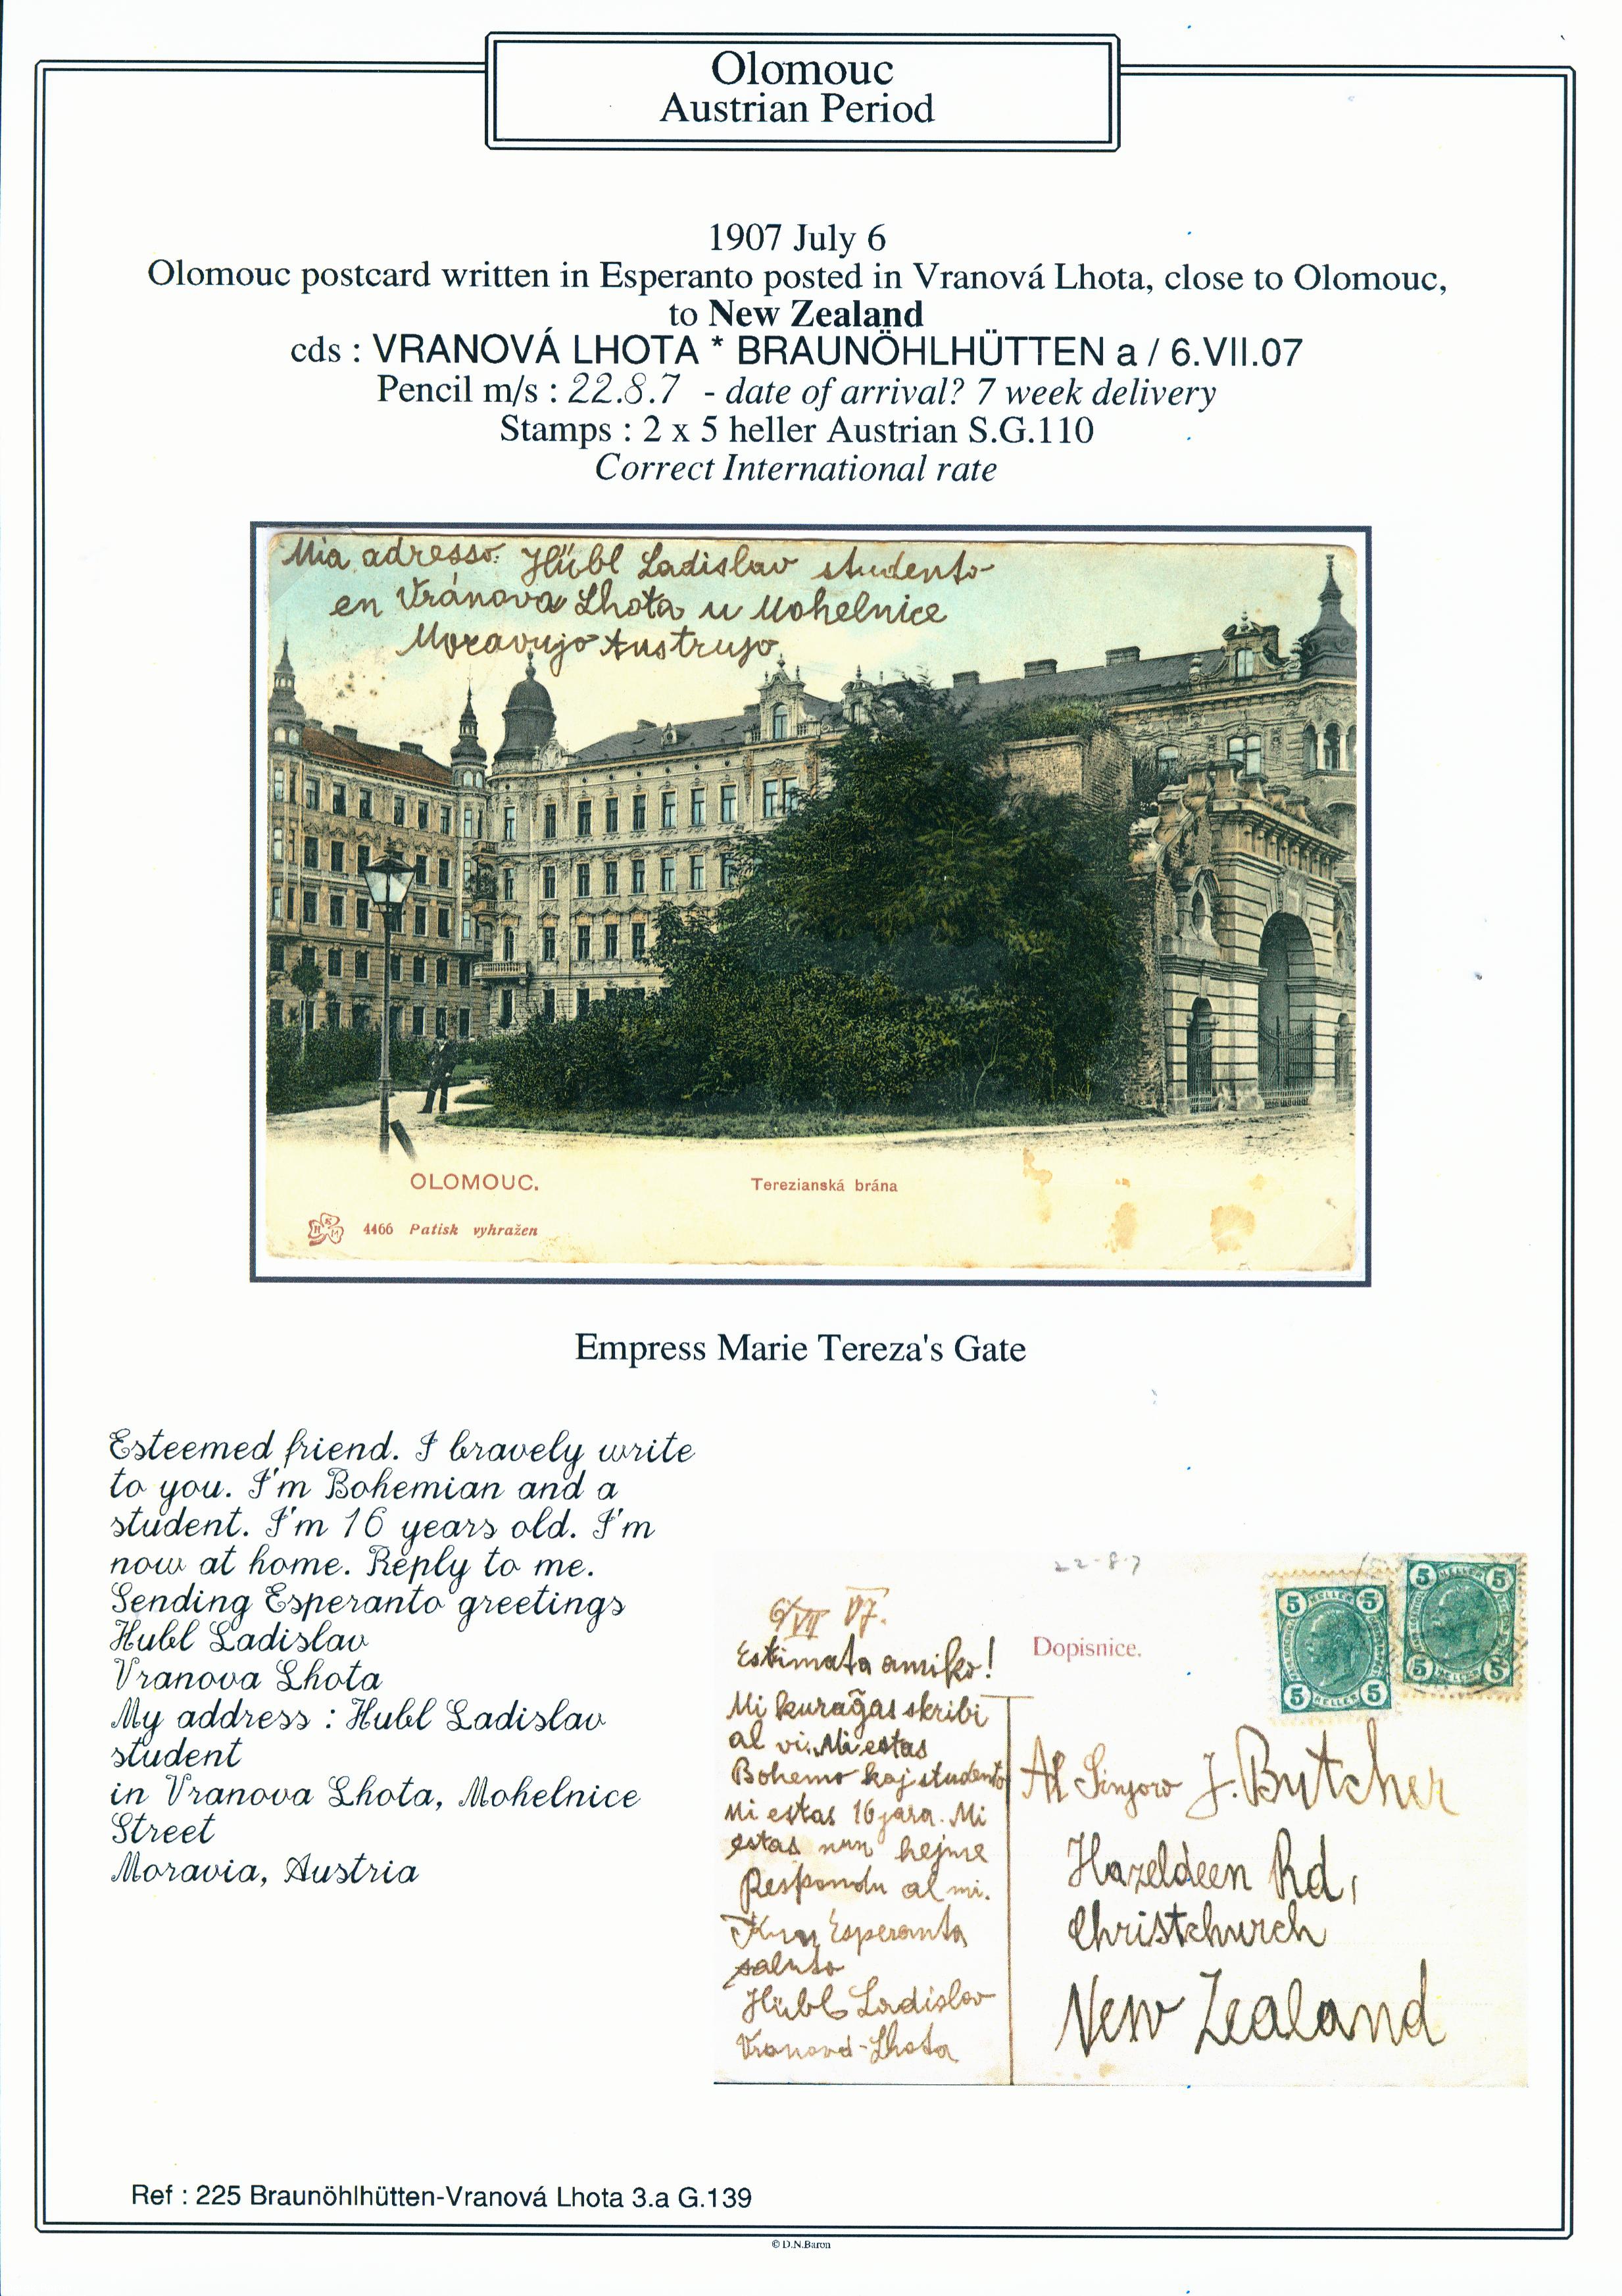 Olomouc
Austrian Period
1907 July 6
Olomouc postcard written in Esperanto posted in Vranová Lhota, close to Olomouc,
to New Zealand
cds : VRANOVÁ LHOTA * BRAUNÖHLHÜTTEN a / 6.VII.07
Pencil m/s : 22.8.7 - date of arrival? 7 week delivery
Stamps : 2 x 5 heller Austrian S.G.110
Correct International rate
Mia adresso: Hübl Ladislav studento
en Vránova Lhota u Mohelnice
Moravujo Austrujo
OLOMOUC.
Terezianská brána
4466 Patisk vyhražen
Empress Marie Tereza's Gate
Esteemed friend. I bravely write
to you. I'm Bohemian and a
student. I'm 16 years old. I'm
now at home. Reply to me.
Sending Esperanto greetings
Hubl Ladislav
Vranova Lhota
My address : Hubl Ladislav
student
in Vranova Lhota, Mohelnice
Street
Moravia, Austria
22-8-7
6/VII 07.
Estimata amiko!
Mi kuraĝas skribi
al vi. Mi estas
Bohemo kaj studento
Mi estas 16 jara. Mi
estas nun hejme
Respondu al mi.
Kun Esperanta
saluto
Hübl Ladislav
Vranová-Lhota
Dopisnice.
5 HELLER 5
5 HELLER 5
5 HELLER 5
5 HELLER 5
Al Sinjoro J. Butcher
Hazeldeen Rd,
Christchurch
New Zealand
Ref : 225 Braunöhlhütten-Vranová Lhota 3.a G.139
© D.N.Baron